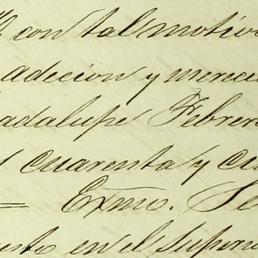 con tal motivo
adecion y merece
adalupe Febrero
cuarenta y cu
= Exmo. Se
esto en el Super